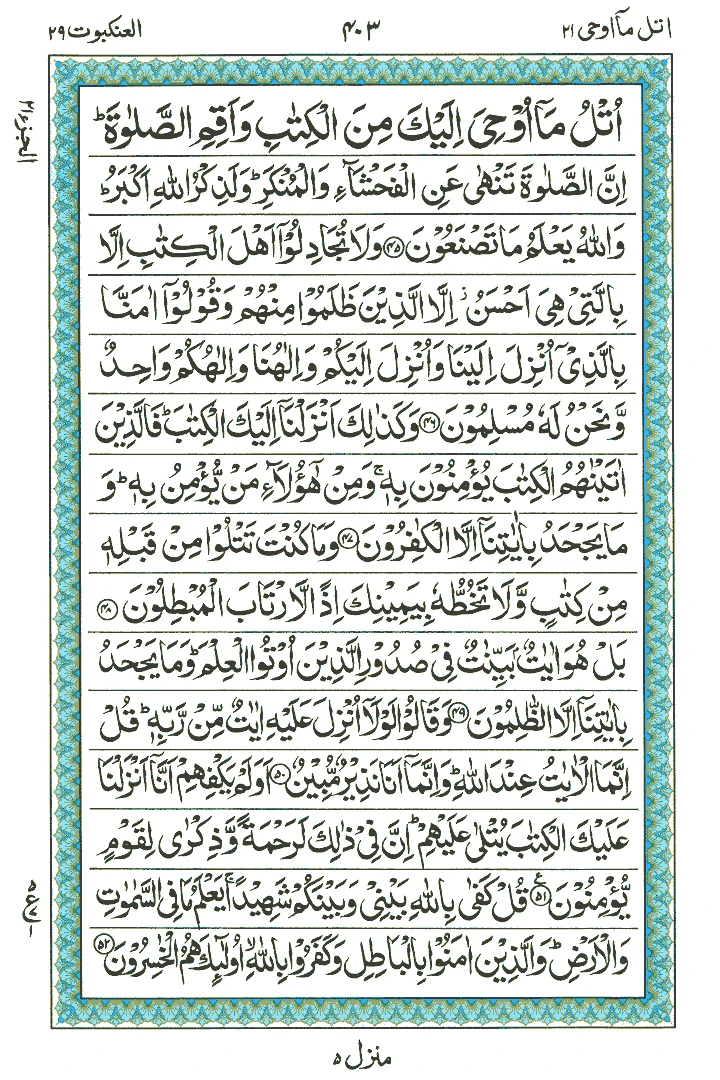 اتل مآاوحی ۲۱
۴۰۳
العنکبوت ۲۹
الجزء ۲۱
اُتْلُ مَآ اُوْحِیَ اِلَیْكَ مِنَ الْكِتٰبِ وَاَقِمِ الصَّلٰوةَ ؕ
اِنَّ الصَّلٰوةَ تَنْهٰی عَنِ الْفَحْشَآءِ وَالْمُنْكَرِ ؕ وَلَذِكْرُ اللّٰهِ اَكْبَرُ ؕ
وَاللّٰهُ یَعْلَمُ مَا تَصْنَعُوْنَ ﴿۴۵﴾ وَلَا تُجَادِلُوْۤا اَهْلَ الْكِتٰبِ اِلَّا
بِالَّتِیْ هِیَ اَحْسَنُ ۖ اِلَّا الَّذِیْنَ ظَلَمُوْا مِنْهُمْ وَقُوْلُوْۤا اٰمَنَّا
بِالَّذِیْۤ اُنْزِلَ اِلَیْنَا وَاُنْزِلَ اِلَیْكُمْ وَاِلٰهُنَا وَاِلٰهُكُمْ وَاحِدٌ
وَّنَحْنُ لَهٗ مُسْلِمُوْنَ ﴿۴۶﴾ وَكَذٰلِكَ اَنْزَلْنَاۤ اِلَیْكَ الْكِتٰبَ ؕ فَالَّذِیْنَ
اٰتَیْنٰهُمُ الْكِتٰبَ یُؤْمِنُوْنَ بِهٖ ۚ وَمِنْ هٰۤؤُلَآءِ مَنْ یُّؤْمِنُ بِهٖ ؕ وَ
مَا یَجْحَدُ بِاٰیٰتِنَاۤ اِلَّا الْكٰفِرُوْنَ ﴿۴۷﴾ وَمَا كُنْتَ تَتْلُوْا مِنْ قَبْلِهٖ
مِنْ كِتٰبٍ وَّلَا تَخُطُّهٗ بِیَمِیْنِكَ اِذًا لَّارْتَابَ الْمُبْطِلُوْنَ ﴿۴۸﴾
بَلْ هُوَ اٰیٰتٌۢ بَیِّنٰتٌ فِیْ صُدُوْرِ الَّذِیْنَ اُوْتُوا الْعِلْمَ ؕ وَمَا یَجْحَدُ
بِاٰیٰتِنَاۤ اِلَّا الظّٰلِمُوْنَ ﴿۴۹﴾ وَقَالُوْا لَوْلَاۤ اُنْزِلَ عَلَیْهِ اٰیٰتٌ مِّنْ رَّبِّهٖ ؕ قُلْ
اِنَّمَا الْاٰیٰتُ عِنْدَ اللّٰهِ ؕ وَاِنَّمَاۤ اَنَا نَذِیْرٌ مُّبِیْنٌ ﴿۵۰﴾ اَوَلَمْ یَكْفِهِمْ اَنَّاۤ اَنْزَلْنَا
عَلَیْكَ الْكِتٰبَ یُتْلٰی عَلَیْهِمْ ؕ اِنَّ فِیْ ذٰلِكَ لَرَحْمَةً وَّذِكْرٰی لِقَوْمٍ
یُّؤْمِنُوْنَ ﴿۵۱﴾ ع قُلْ كَفٰی بِاللّٰهِ بَیْنِیْ وَبَیْنَكُمْ شَهِیْدًا ۚ یَعْلَمُ مَا فِی السَّمٰوٰتِ
وَالْاَرْضِ ؕ وَالَّذِیْنَ اٰمَنُوْا بِالْبَاطِلِ وَكَفَرُوْا بِاللّٰهِ ۙ اُولٰٓئِكَ هُمُ الْخٰسِرُوْنَ ﴿۵۲﴾
منزل ۵